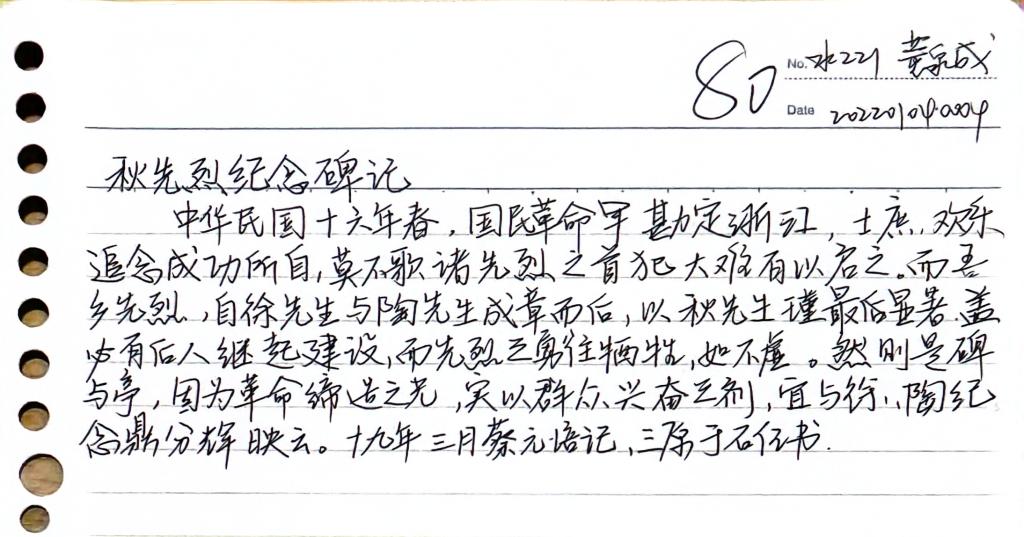 80
No. 水221 黄泉成
Date 20220104.0004
秋先烈纪念碑记
中华民国十六年春，国民革命军勘定浙江，士庶欢乐
追念成功所自，莫不歌诸先烈之首犯大难有以启之。而吾
乡先烈，自徐先生与陶先生成章而后，以秋先生瑾最后显著，盖
必有后人继起建设，而先烈之勇往牺牲，如不虚。然则是碑
与亭，因为革命缔造之光，实以群众兴奋之剂，宜与徐、陶纪
念鼎分辉映云。十九年三月蔡元培记，三原于右任书.